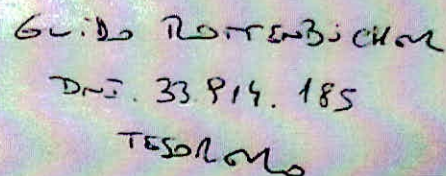 GUIDO ROTTENBÜCHER
DNI. 33.914.185
TESORERO